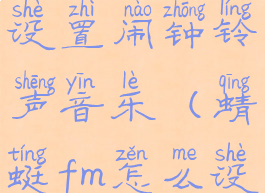 shè zhì nào zhōng líng
设置闹钟铃
shēng yīn lè qīng
声音乐（蜻
tíng zěn me shè
蜓fm怎么设